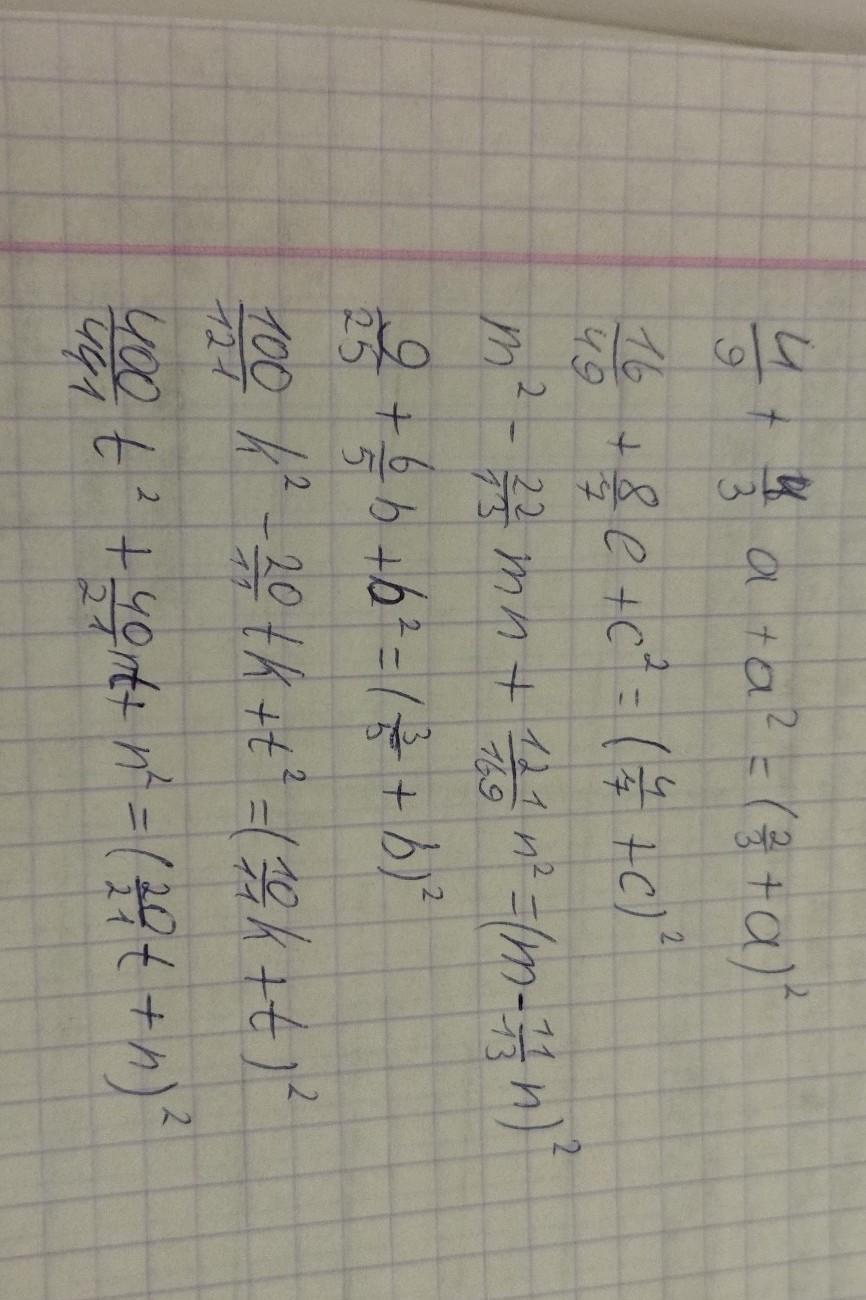 4/9 + 4/3 a + a² = (2/3 + a)²
16/49 + 8/7 c + c² = (4/7 + c)²
m² - 22/13 mn + 121/169 n² = (m - 11/13 n)²
9/25 + 6/5 b + b² = (3/5 + b)²
100/121 k² - 20/11 tk + t² = (10/11 k + t)²
400/441 t² + 40/21 nt + n² = (20/21 t + n)²